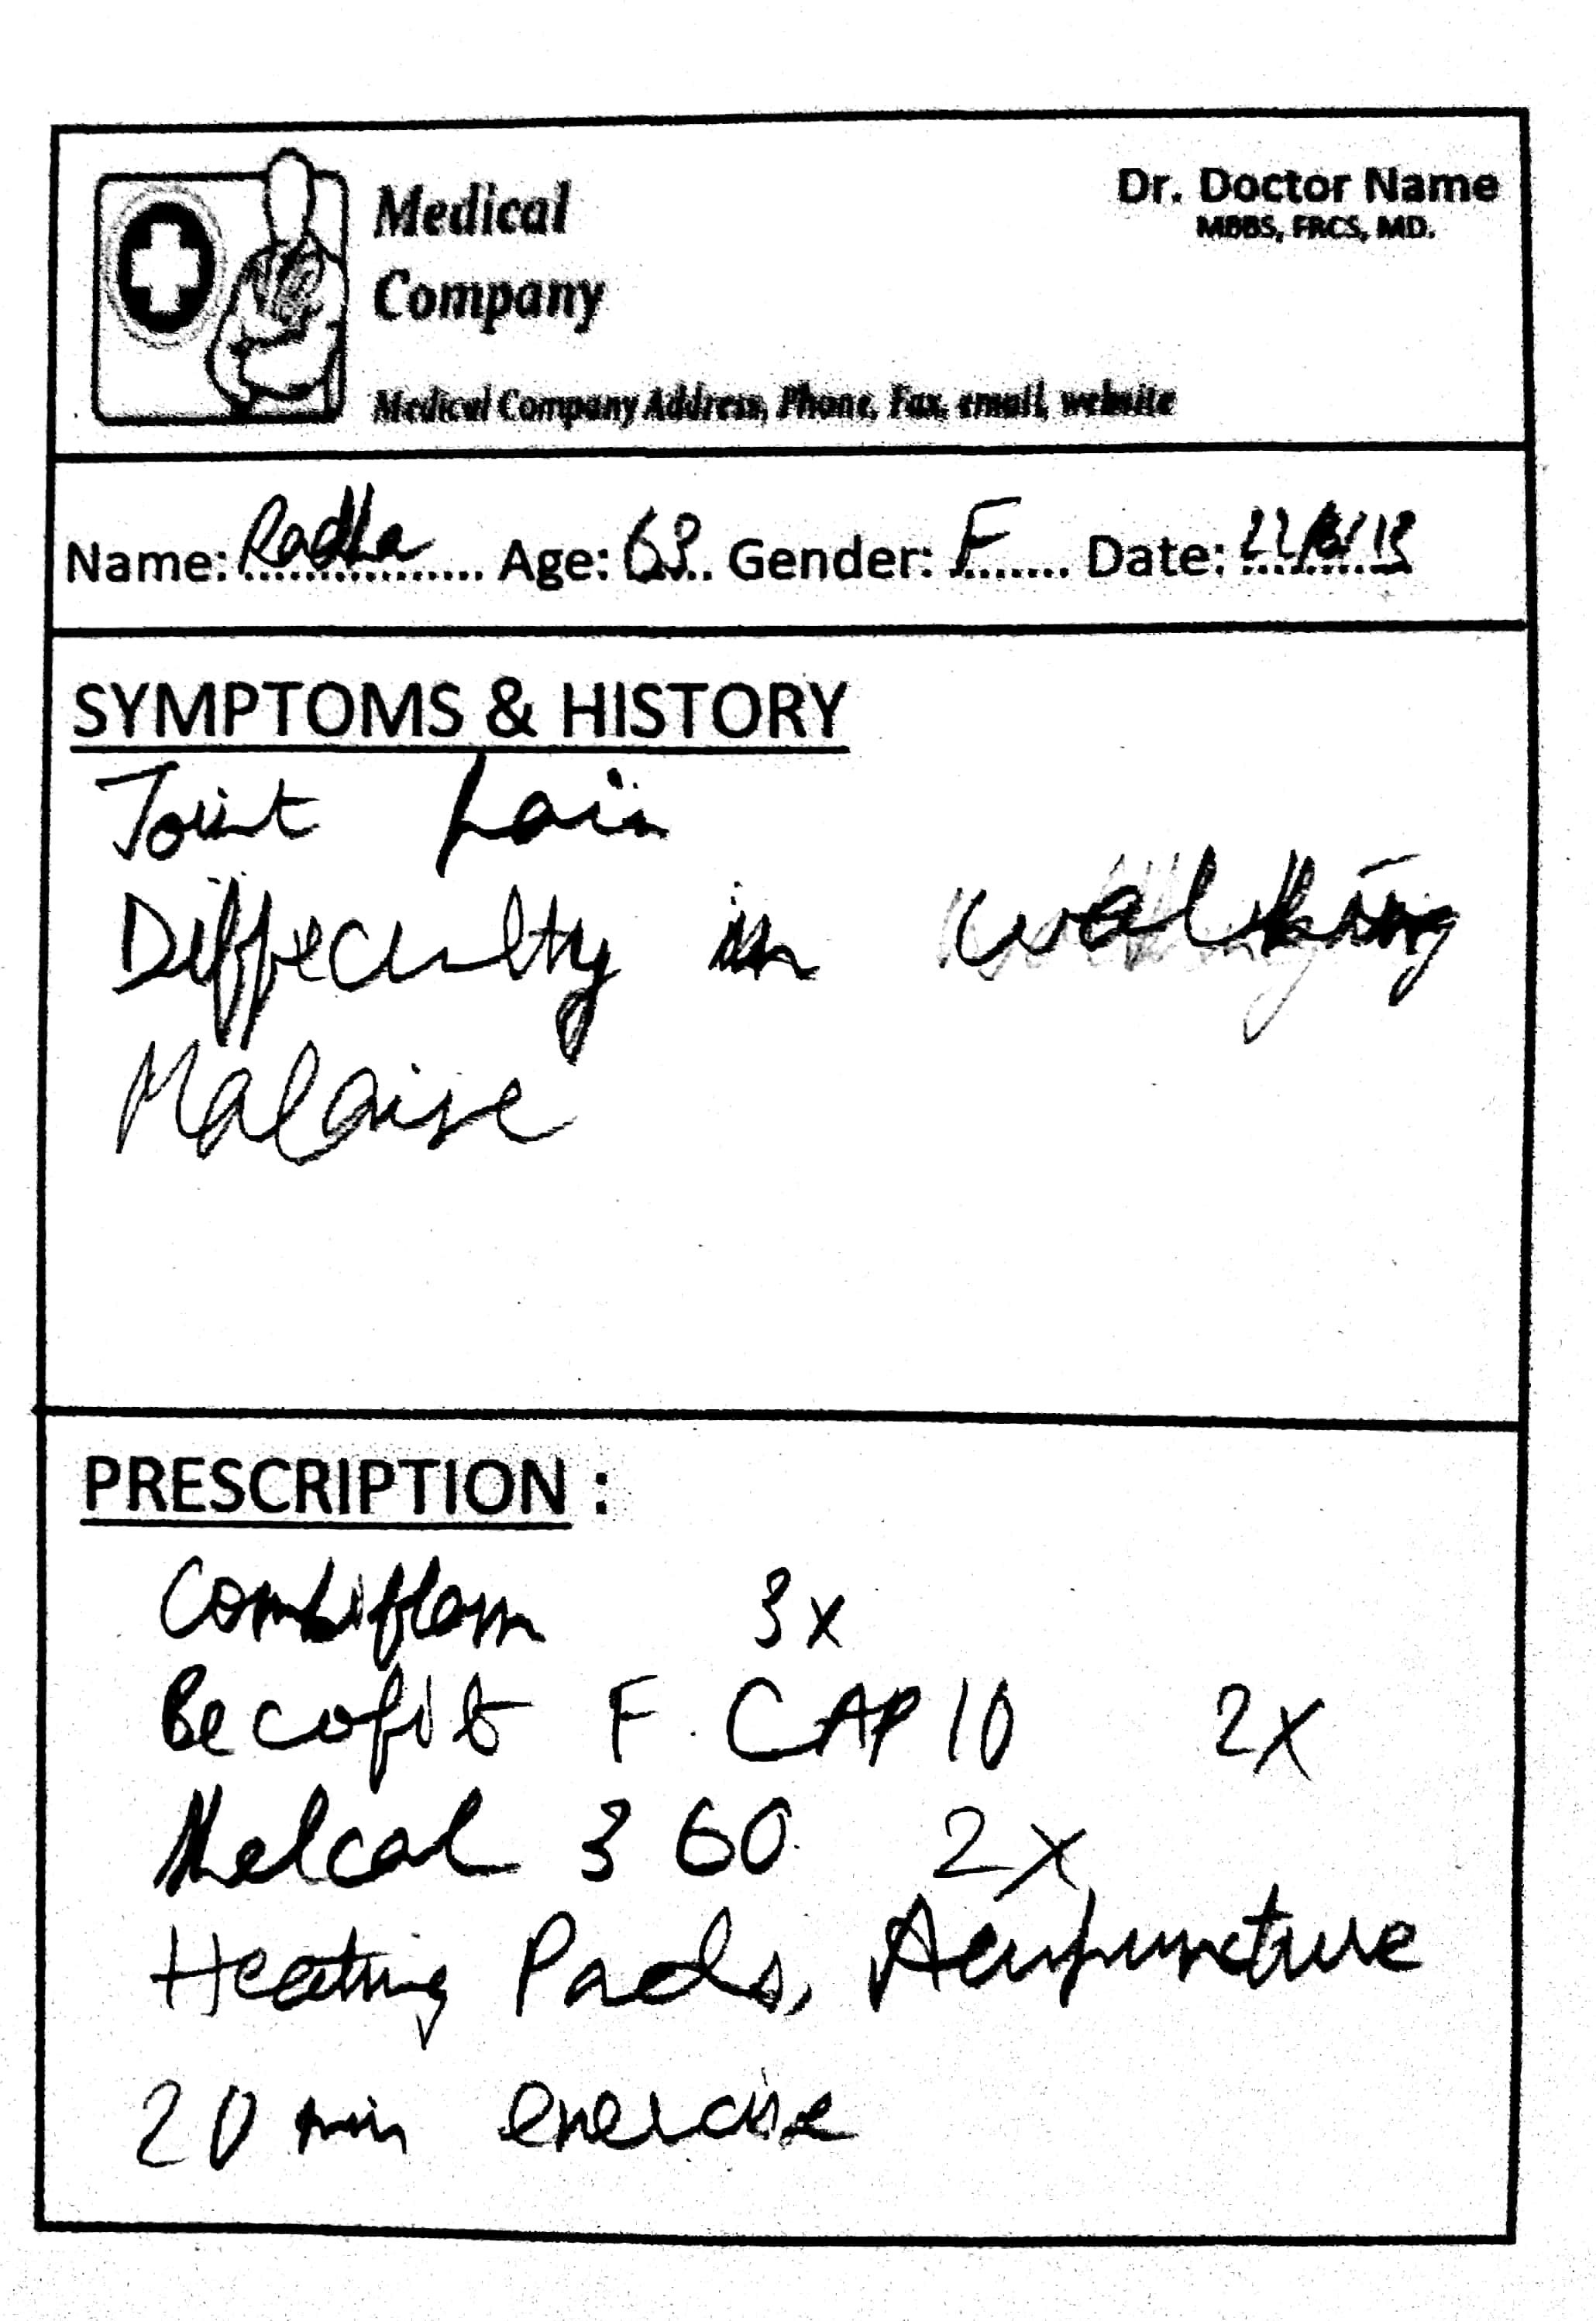 Medical
Company
Dr. Doctor Name
MBBS, FRCS, MD.
Medical Company Address, Phone, Fax, email, website
Name: Radha Age: 63 Gender: F Date:
SYMPTOMS & HISTORY
Joint pain
Diffeculty in walking
Malaise
PRESCRIPTION :
Combiflam 3x
Becofit F. CAP 10 2x
Melcal 360 2x
Heating Pads, Acupuncture
20 min exercise